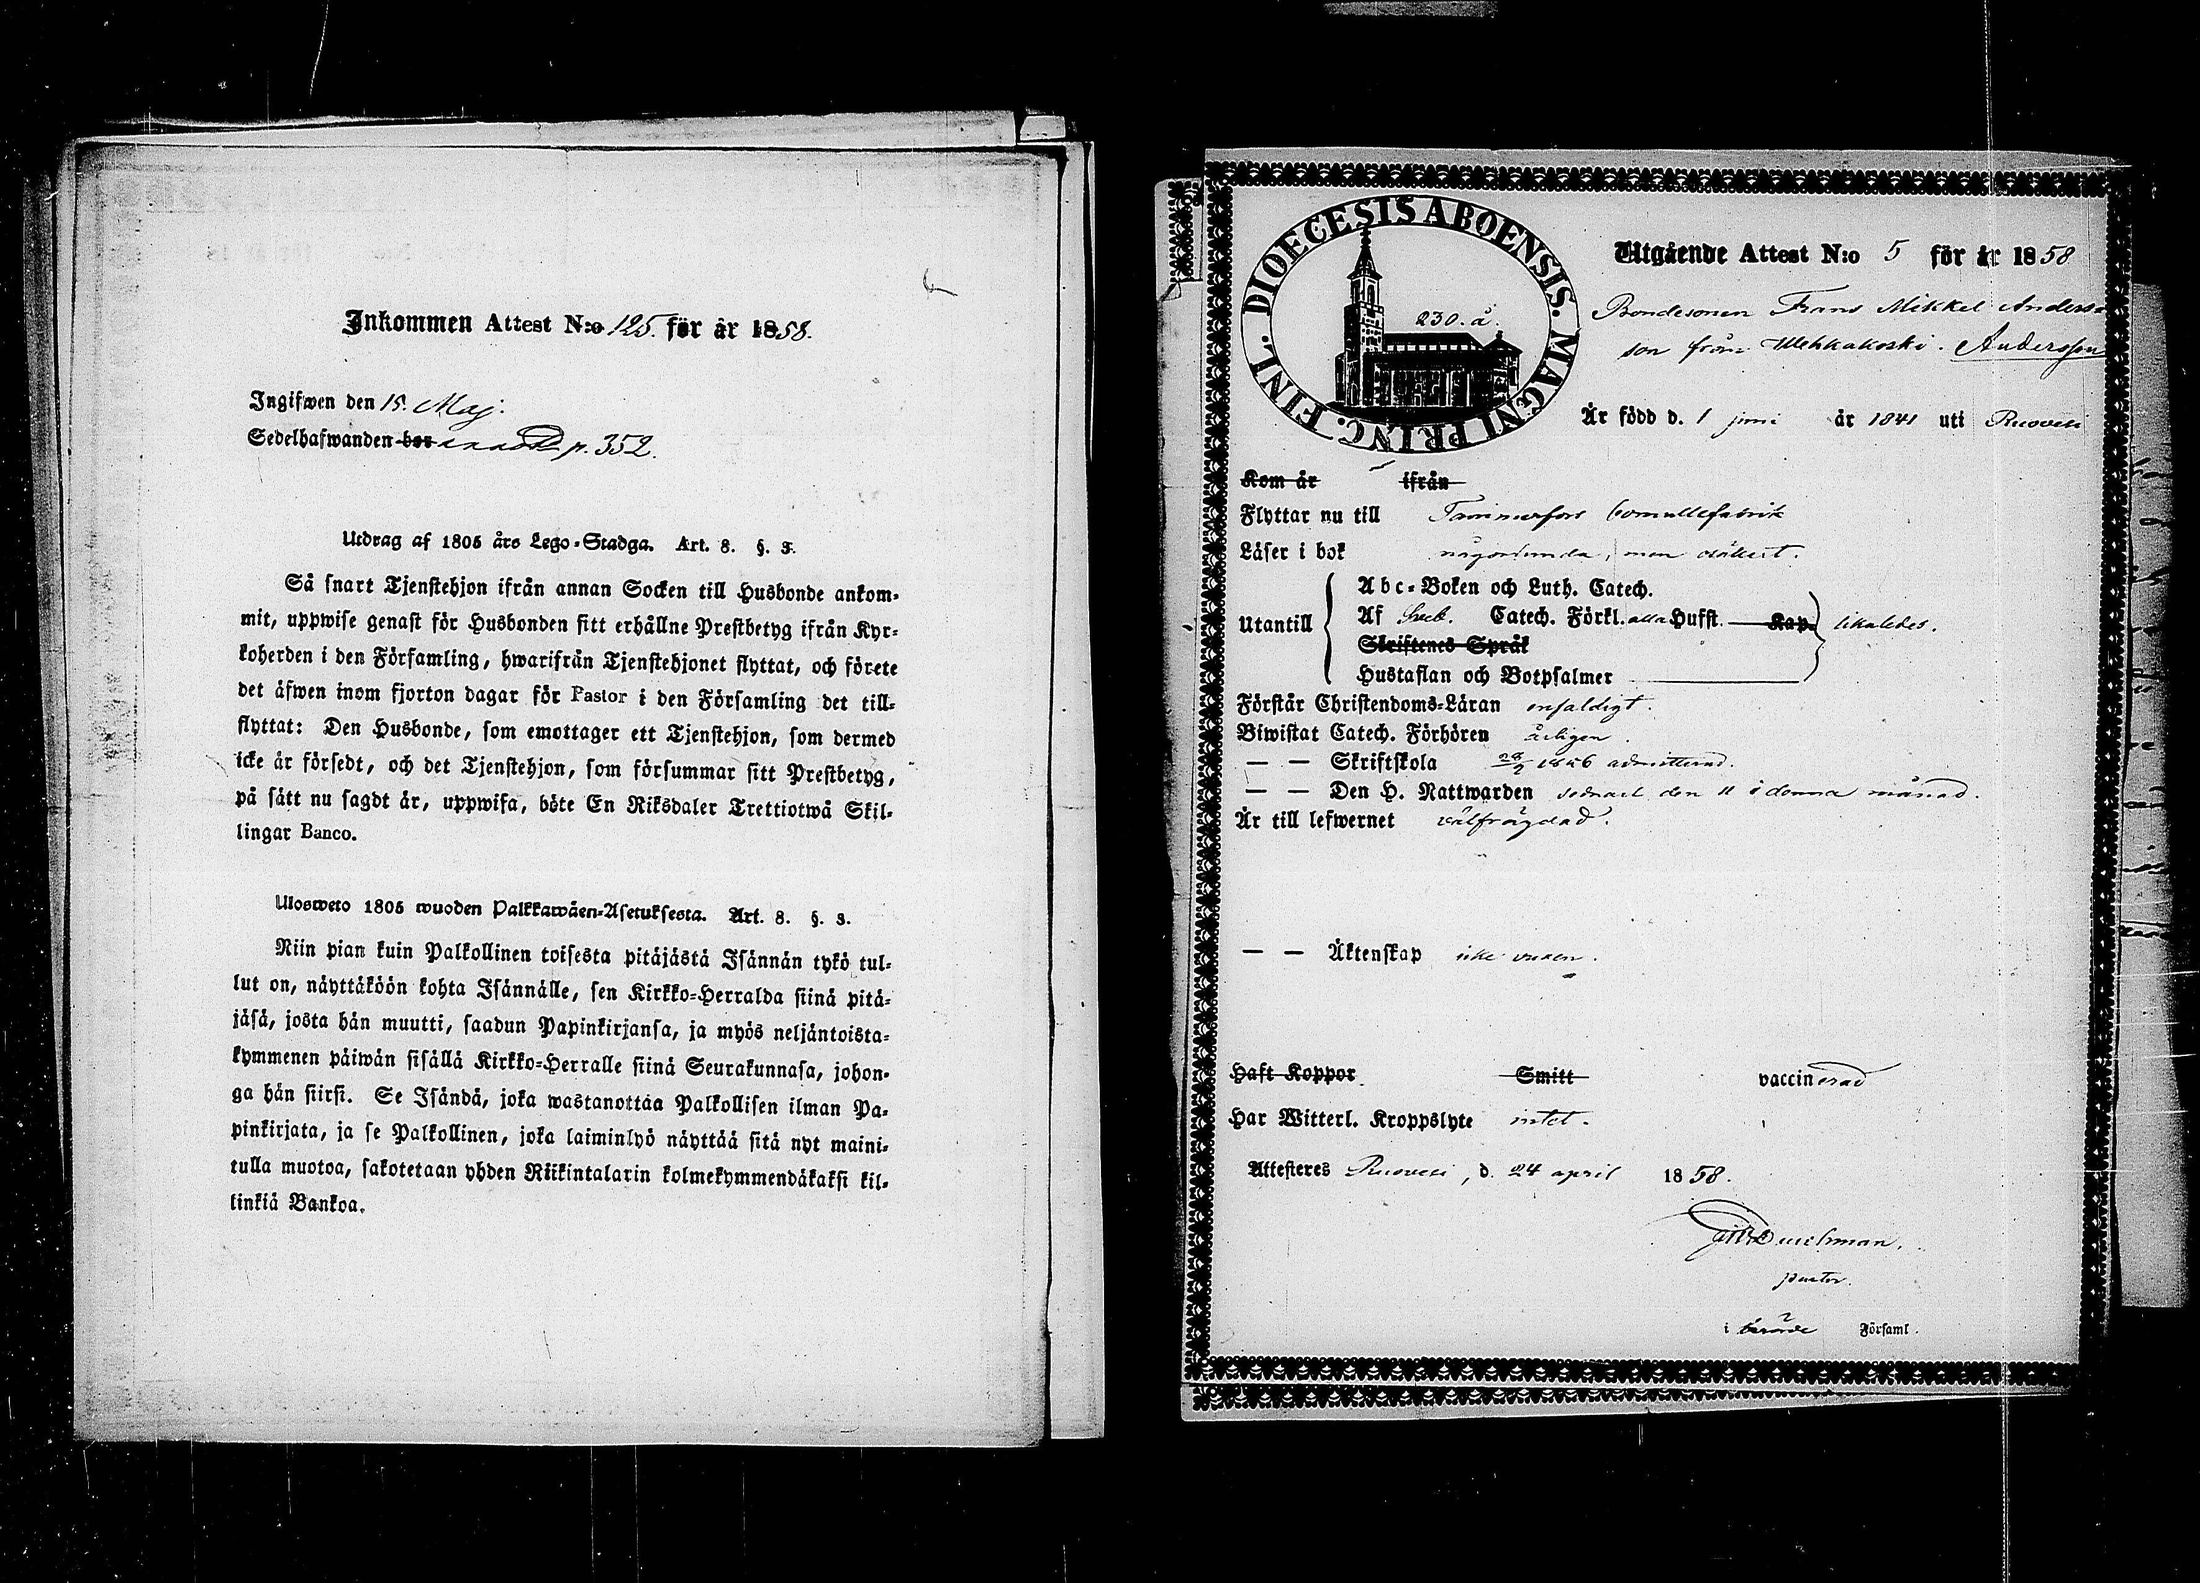 Inkommen Attest N:o 125. för år 1858.
Ingifwen den 15. Maj.
Sedelhafwanden bor p. 352.
Utdrag af 1805 års Lego-Stadga. Art. 8. §. 3.
Så snart Tjenstehjon ifrån annan Socken till Husbonde ankom-
mit, uppwise genast för Husbonden sitt erhållne Prestbetyg ifrån Kyr-
koherden i den Församling, hwarifrån Tjenstehjonet flyttat, och förete
det äfwen inom fjorton dagar för Pastor i den Församling det till-
flyttat: Den Husbonde, som emottager ett Tjenstehjon, som dermed
icke är försedt, och det Tjenstehjon, som försummar sitt Prestbetyg,
på sätt nu sagdt är, uppwisa, böte En Riksdaler Trettiotwå Skil-
lingar Banco.
Ulosweto 1805 wuoden Palkkawäen-Asetuksesta. Art. 8. §. 3.
Niin pian kuin Palkollinen toisesta pitäjästä Isännän tykö tul-
lut on, näyttäköön kohta Isännälle, sen Kirkko-Herralda siinä pitä-
jäsä, josta hän muutti, saadun Papinkirjansa, ja myös neljäntoista-
kymmenen päiwän sisällä Kirkko-Herralle siinä Seurakunnasa, johon-
ga hän siirsi. Se Isändä, joka wastanottaa Palkollisen ilman Pa-
pinkirjata, ja se Palkollinen, joka laiminlyö näyttää sitä nyt maini-
tulla muotoa, sakotetaan yhden Riikintalarin kolmekymmendäkaksi kil-
linkiä Bankoa.
DIOECESIS ABOENSIS. MAGNI PRINC. FINL.
230. å.
Utgående Attest N:o 5 för år 1858
Bondesonen Frans Mikkel Anders-
son från Wehkakoski. Andersson
Är född d. 1 juni år 1841 uti Ruovesi
Kom år ifrån
Flyttar nu till Tammerfors bomullsfabrik
Läser i bok någorlunda, men osäkert.
Utantill
Abc-Boken och Luth. Catech.
Af Sveb. Catech. Förkl. alla Hufst. Kap. likaledes.
Skriftenes Språk
Hustaflan och Botpsalmer
Förstår Christendoms-Läran enfaldigt.
Biwistat Catech. Förhören årligen.
— — Skriftskola 1856 admitterad.
— — Den H. Nattwarden sednast den 11 i denna månad.
Är till lefwernet välfrägdad.
— — Äktenskap icke vuxen.
Haft Koppor Smitt vaccinerad
Har Witterl. Kroppslyte intet.
Attesteres Ruovesi, d. 24 april 1858.
pastor.
i berörde Församl.